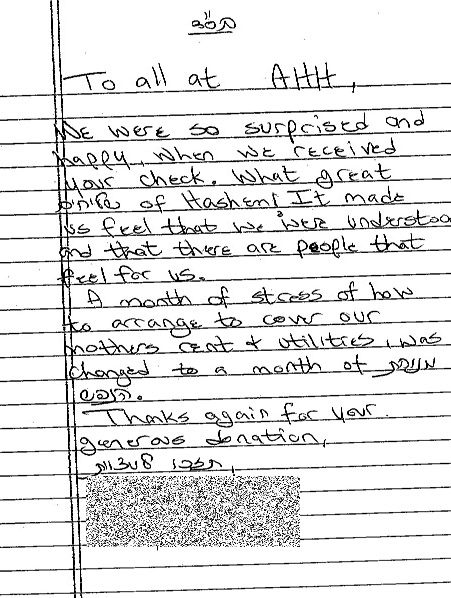 בס"ד
To all at AHH,
We were so surprised and
happy, when we received
your check. What great
חסדים of Hashem! It made
us feel that we were understoo
and that there are people that
feel for us.
A month of stress of how
to arrange to cover our
mothers rent & utilities, was
changed to a month of מנוחת
הנפש.
Thanks again for your
generous donation,
תזכו למצוות,